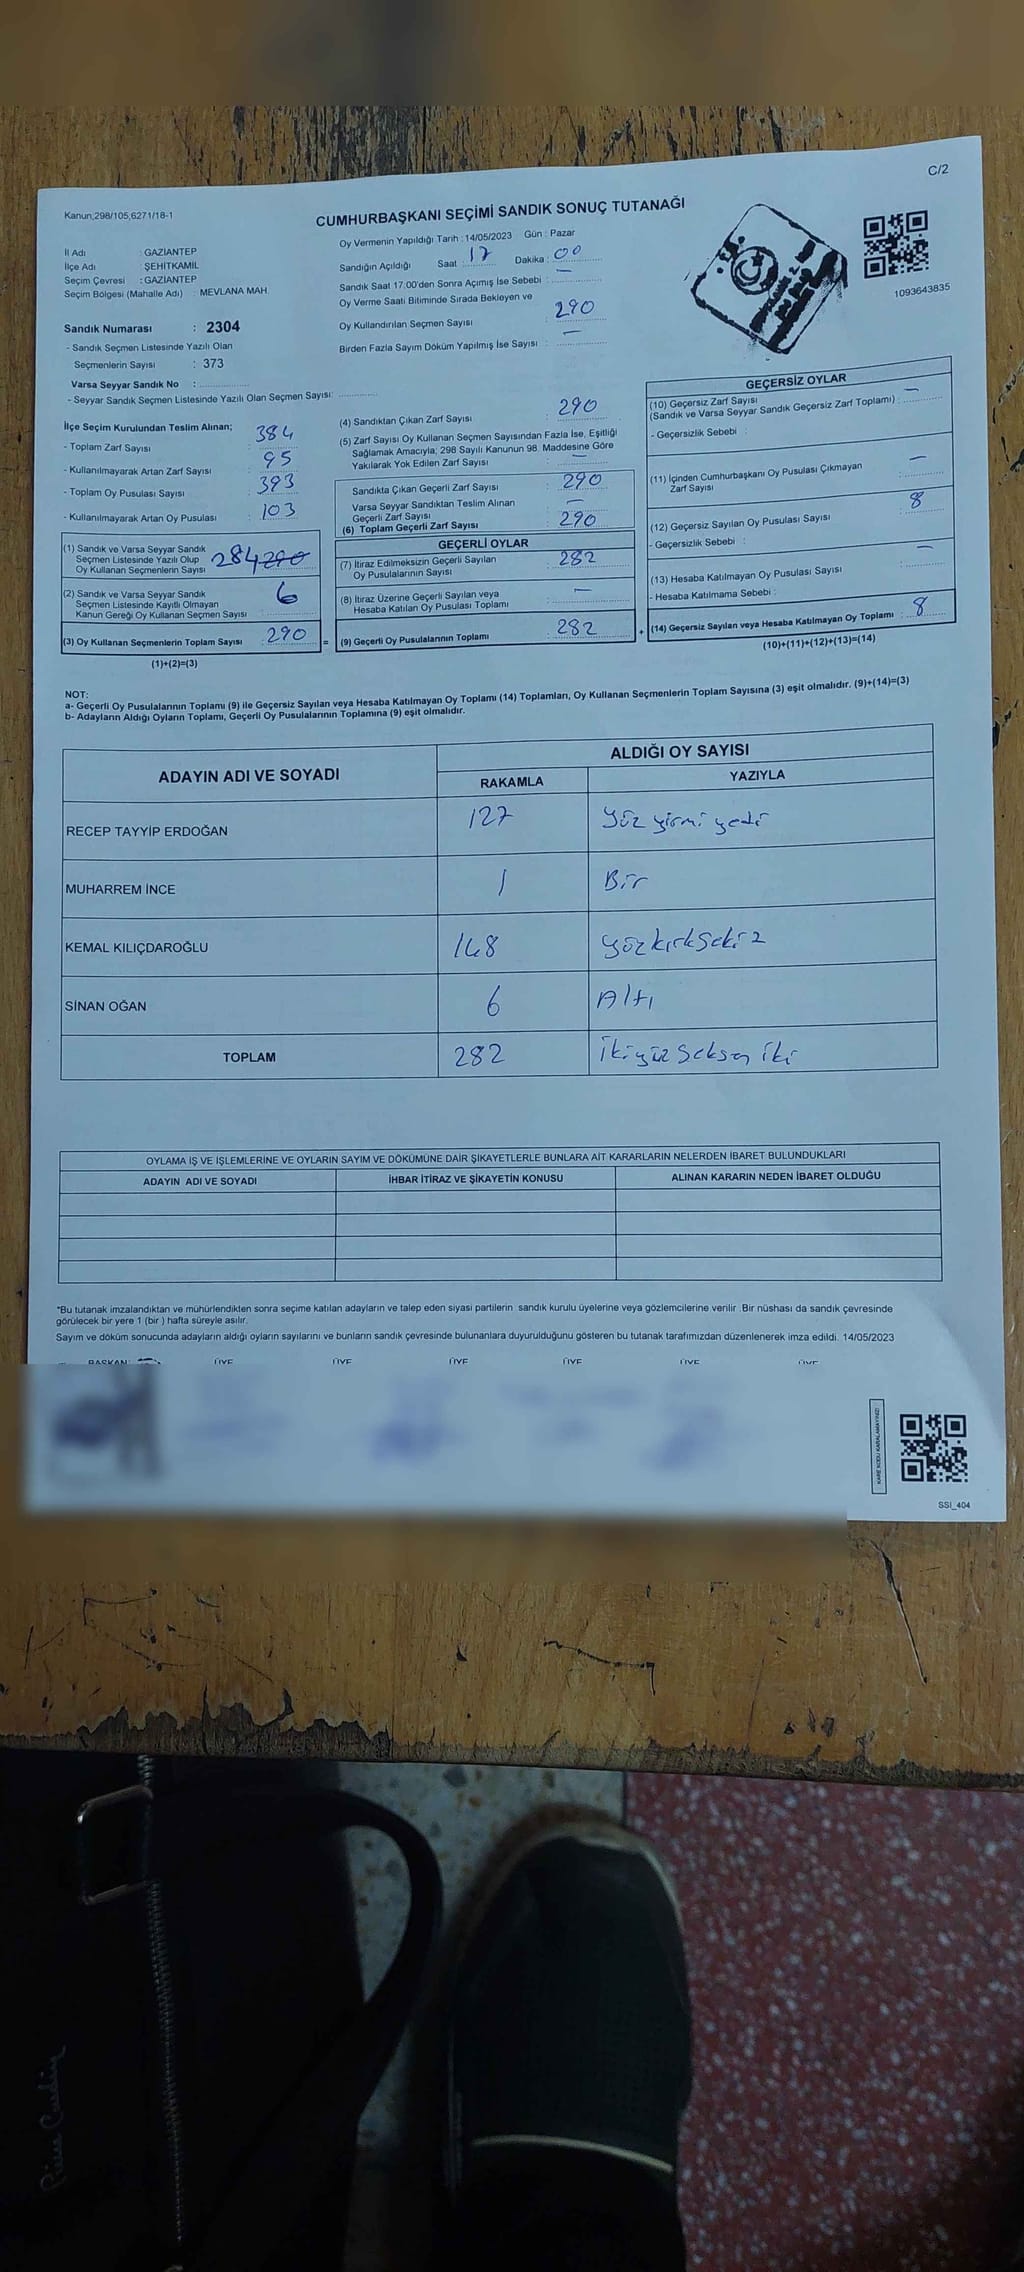 C/2
Kanun;298/105,6271/18-1
CUMHURBAŞKANI SEÇİMİ SANDIK SONUÇ TUTANAĞI
Oy Vermenin Yapıldığı Tarih : 14/05/2023 Gün : Pazar
İl Adı : GAZİANTEP
İlçe Adı : ŞEHİTKAMİL
Seçim Çevresi : GAZİANTEP
Seçim Bölgesi (Mahalle Adı) : MEVLANA MAH.
Sandığın Açıldığı Saat 17 Dakika : 00
Sandık Saat 17:00'den Sonra Açımış İse Sebebi : —
Oy Verme Saati Bitiminde Sırada Bekleyen ve
Oy Kullandırılan Seçmen Sayısı : 290
Birden Fazla Sayım Döküm Yapılmış İse Sayısı : —
1093643835
Sandık Numarası : 2304
- Sandık Seçmen Listesinde Yazılı Olan
Seçmenlerin Sayısı : 373
Varsa Seyyar Sandık No :
- Seyyar Sandık Seçmen Listesinde Yazılı Olan Seçmen Sayısı:
İlçe Seçim Kurulundan Teslim Alınan;
- Toplam Zarf Sayısı : 384
- Kullanılmayarak Artan Zarf Sayısı : 95
- Toplam Oy Pusulası Sayısı : 393
- Kullanılmayarak Artan Oy Pusulası : 103
(1) Sandık ve Varsa Seyyar Sandık
Seçmen Listesinde Yazılı Olup
Oy Kullanan Seçmenlerin Sayısı 284 290
(2) Sandık ve Varsa Seyyar Sandık
Seçmen Listesinde Kayıtlı Olmayan
Kanun Gereği Oy Kullanan Seçmen Sayısı 6
(3) Oy Kullanan Seçmenlerin Toplam Sayısı : 290 =
(1)+(2)=(3)
(4) Sandıktan Çıkan Zarf Sayısı : 290
(5) Zarf Sayısı Oy Kullanan Seçmen Sayısından Fazla İse, Eşitliği
Sağlamak Amacıyla; 298 Sayılı Kanunun 98. Maddesine Göre
Yakılarak Yok Edilen Zarf Sayısı : —
Sandıkta Çıkan Geçerli Zarf Sayısı : 290
Varsa Seyyar Sandıktan Teslim Alınan
Geçerli Zarf Sayısı : —
(6) Toplam Geçerli Zarf Sayısı : 290
GEÇERLİ OYLAR
(7) İtiraz Edilmeksizin Geçerli Sayılan
Oy Pusulalarının Sayısı : 282
(8) İtiraz Üzerine Geçerli Sayılan veya
Hesaba Katılan Oy Pusulası Toplamı : —
(9) Geçerli Oy Pusulalarının Toplamı : 282 +
GEÇERSİZ OYLAR
(10) Geçersiz Zarf Sayısı
(Sandık ve Varsa Seyyar Sandık Geçersiz Zarf Toplamı) : —
- Geçersizlik Sebebi :
(11) İçinden Cumhurbaşkanı Oy Pusulası Çıkmayan
Zarf Sayısı —
(12) Geçersiz Sayılan Oy Pusulası Sayısı 8
- Geçersizlik Sebebi :
(13) Hesaba Katılmayan Oy Pusulası Sayısı : —
- Hesaba Katılmama Sebebi :
(14) Geçersiz Sayılan veya Hesaba Katılmayan Oy Toplamı : 8
(10)+(11)+(12)+(13)=(14)
NOT:
a- Geçerli Oy Pusulalarının Toplamı (9) ile Geçersiz Sayılan veya Hesaba Katılmayan Oy Toplamı (14) Toplamları, Oy Kullanan Seçmenlerin Toplam Sayısına (3) eşit olmalıdır. (9)+(14)=(3)
b- Adayların Aldığı Oyların Toplamı, Geçerli Oy Pusulalarının Toplamına (9) eşit olmalıdır.
ADAYIN ADI VE SOYADI ALDIĞI OY SAYISI
RAKAMLA YAZIYLA
RECEP TAYYİP ERDOĞAN 127 Yüz yirmi yedi
MUHARREM İNCE 1 Bir
KEMAL KILIÇDAROĞLU 148 yüzkırksekiz
SİNAN OĞAN 6 Altı
TOPLAM 282 İkiyüz Seksen İki
OYLAMA İŞ VE İŞLEMLERİNE VE OYLARIN SAYIM VE DÖKÜMÜNE DAİR ŞİKAYETLERLE BUNLARA AİT KARARLARIN NELERDEN İBARET BULUNDUKLARI
ADAYIN ADI VE SOYADI İHBAR İTİRAZ VE ŞİKAYETİN KONUSU ALINAN KARARIN NEDEN İBARET OLDUĞU
*Bu tutanak imzalandıktan ve mühürlendikten sonra seçime katılan adayların ve talep eden siyasi partilerin sandık kurulu üyelerine veya gözlemcilerine verilir. Bir nüshası da sandık çevresinde
görülecek bir yere 1 (bir ) hafta süreyle asılır.
Sayım ve döküm sonucunda adayların aldığı oyların sayılarını ve bunların sandık çevresinde bulunanlara duyurulduğunu gösteren bu tutanak tarafımızdan düzenlenerek imza edildi. 14/05/2023
BAŞKAN ÜYE ÜYE ÜYE ÜYE ÜYE ÜYE
KARE KODU KARALAMAYINIZ!
SSİ_404
Pierre Cardin